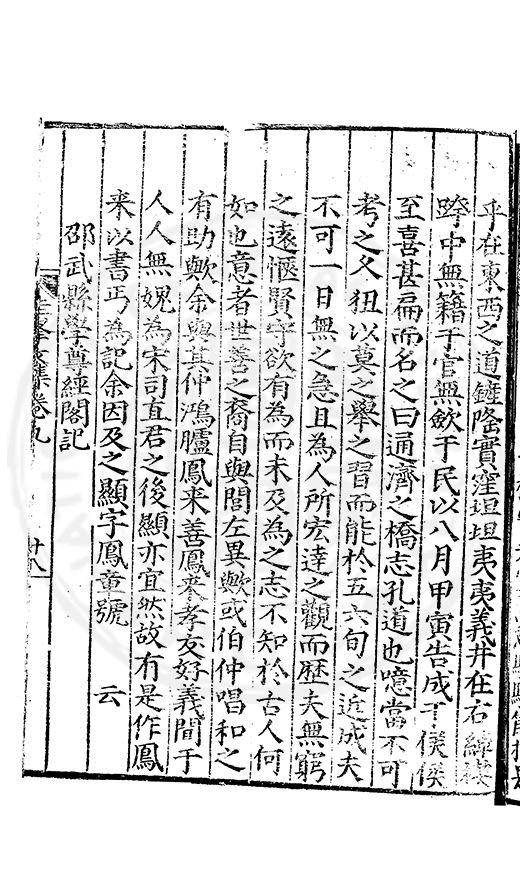 乎在東西之道鏟隆實窪坦坦夷夷義井在右緯楔
跨中無籍于官無斂于民以八月甲寅告成于侯侯
至喜甚扁而名之曰通濟之橋志孔道也噫當不可
考之久狃以莫之舉之習而能於五六旬之近成夫
不可一日無之急且為人所宏達之觀而歷夫無窮
之遠愜賢守欲有為而未及為之志不知於古人何
如也意者世善之裔自與閭左異歟或伯仲唱和之
有助歟余與其仲鴻臚鳳来善鳳来孝友好義間于
人人無媿為宋司直君之後顯亦宜然故有是作鳳
来以書丐為記余因及之顯字鳳章號　云
邵武縣學尊經閣記
集卷九
廿八